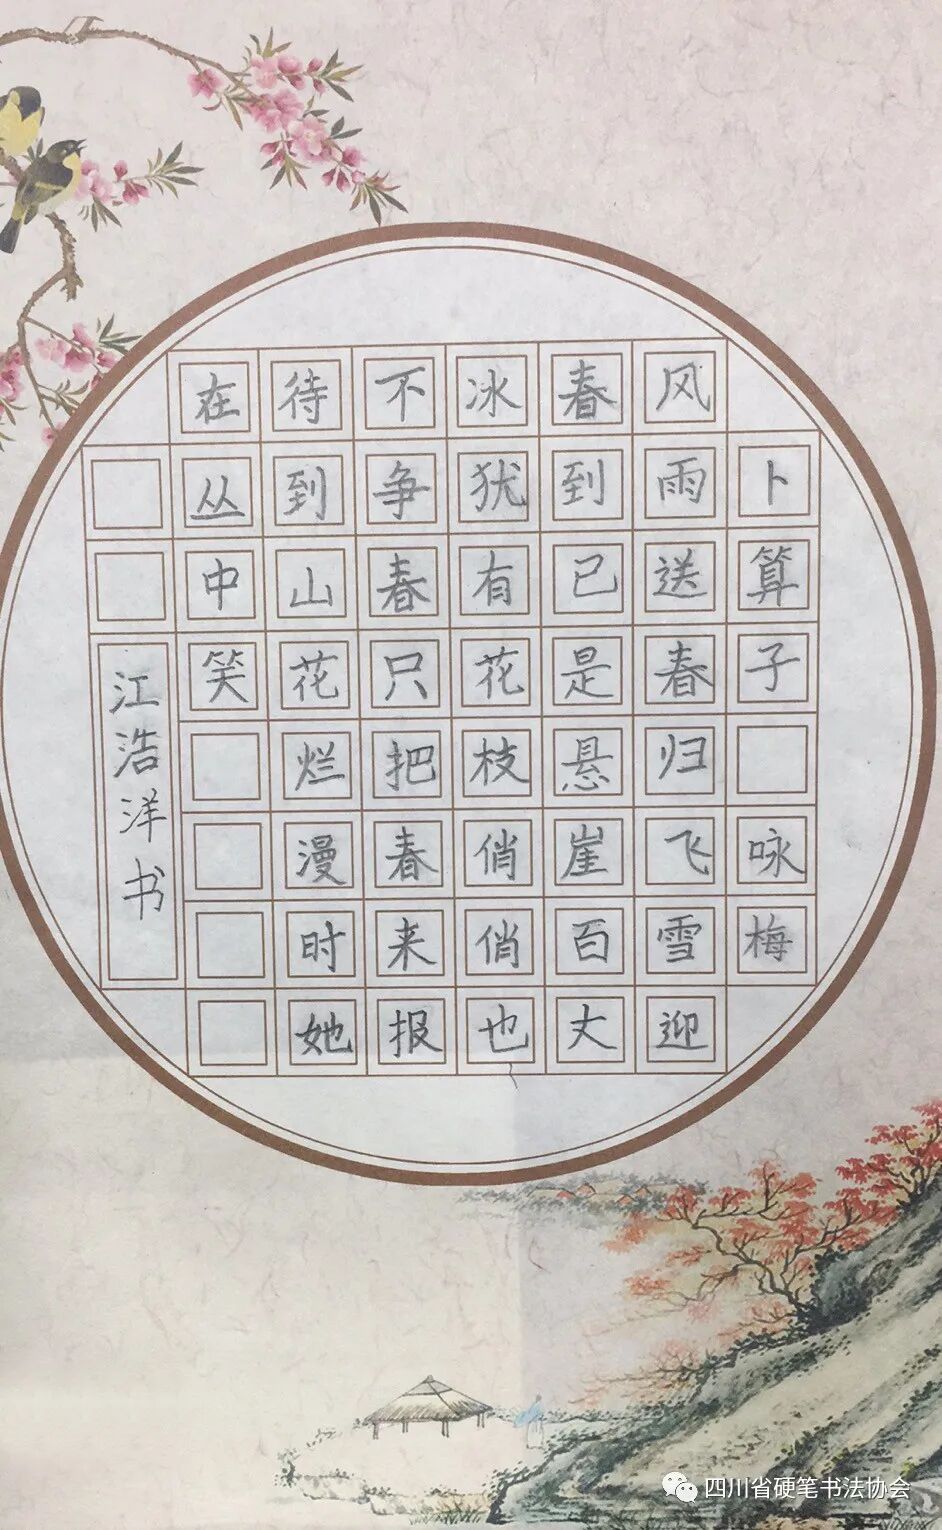 卜算子咏梅
风雨送春归飞雪迎
春到已是悬崖百丈
冰犹有花枝俏俏也
不争春只把春来报
待到山花烂漫时她
在丛中笑
江浩洋书
四川省硬笔书法协会